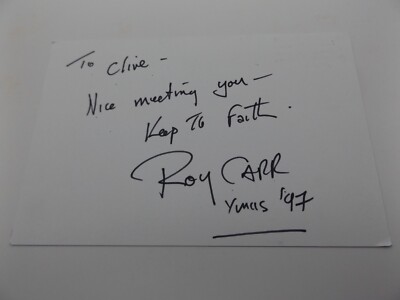 To Clive -
Nice meeting you -
Keep To Faith.
Roy CARR
Xmas '97